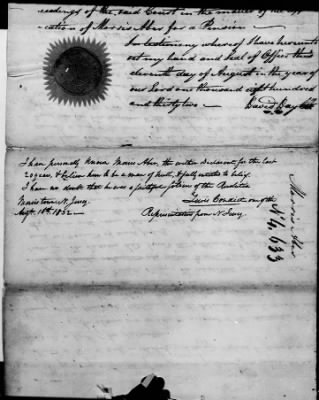 ceedings of the said Court in the matter of the
cation of Morris Aber for a Pension
In testimony whereof I have hereunto
set my hand and Seal of Office this
eleventh day of August in the year of
our Lord one thousand eight hundred
and thirty two — David Day Clk
I have personally known Morris Aber, the within Declarant for the last
20 years, & believe him to be a man of truth, & fully entitled to belief.
I have no doubt that he was a faithful soldier of the Revolution
Morristown N. Jersey. Lewis Condict one of the
Augt. 16th. 1832 — Representatives from N Jersey.
Morris Aber
N 4,633